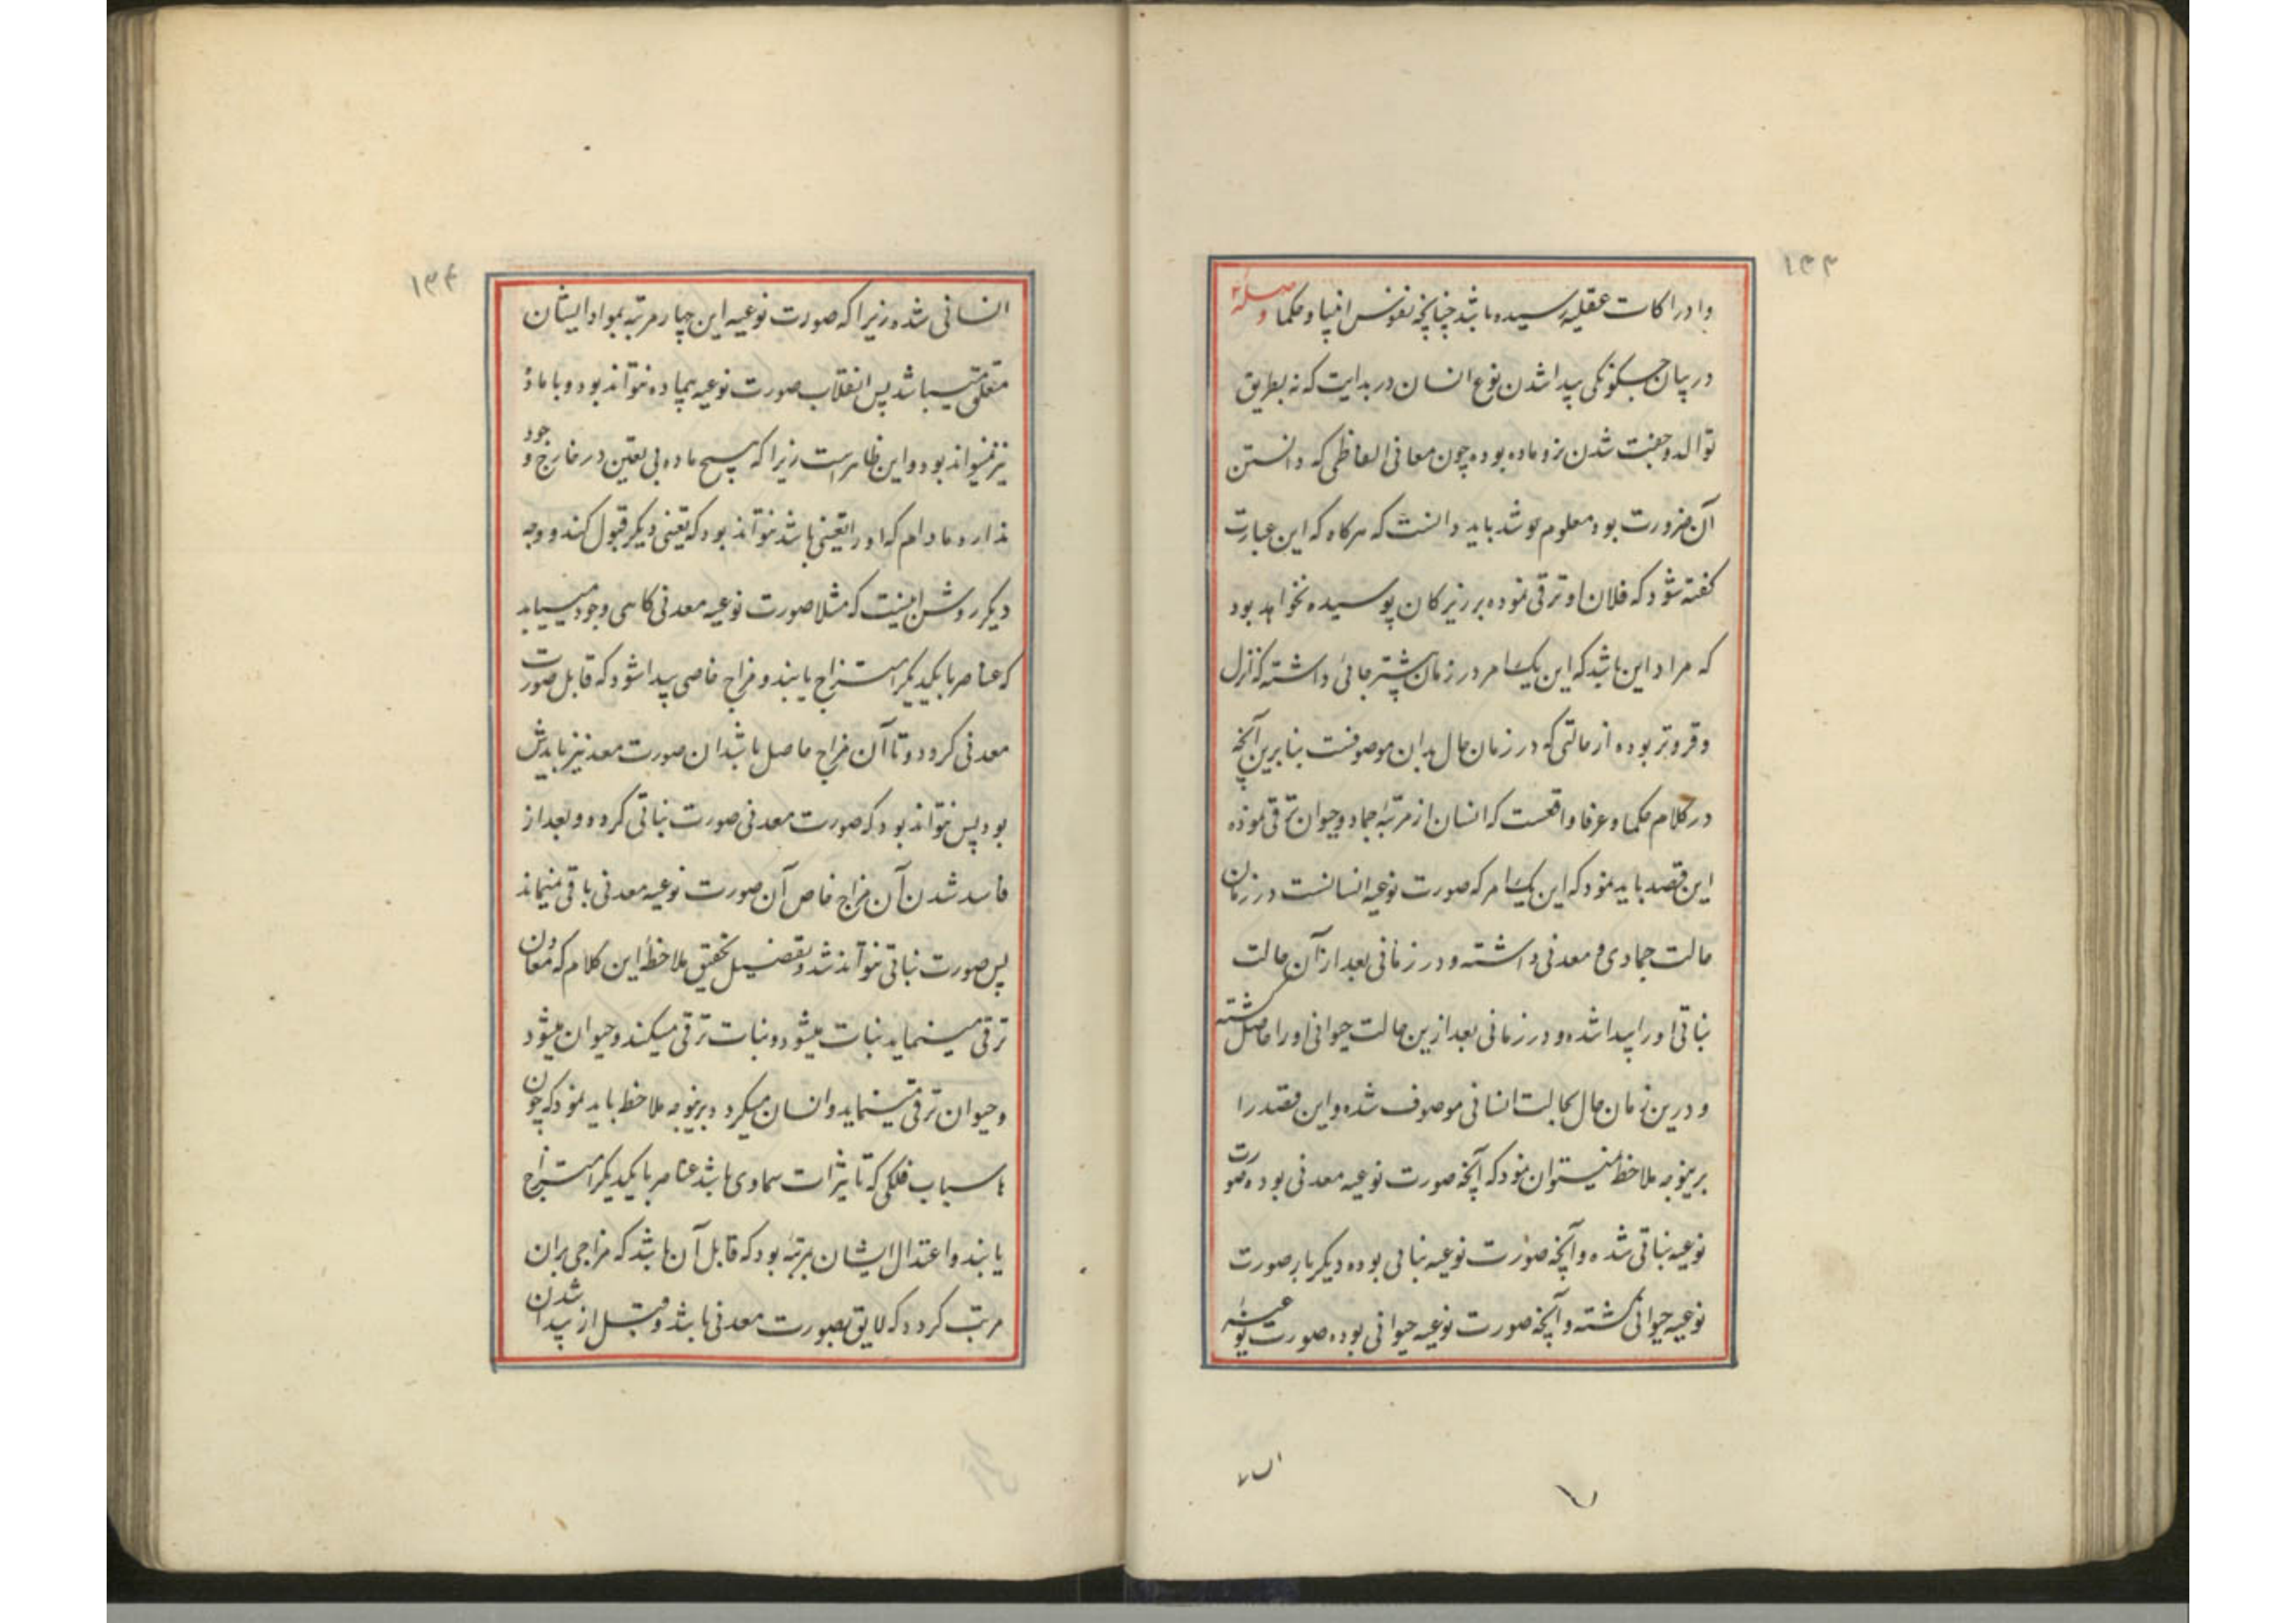 ۱۳۳
وادراکات عقلیه رسیده باشد چنانچه نفوس انبیا و حکما وصل ۲
در بیان چگونگی پیدا شدن نوع انسان در بدایت که نه بطریق
توالد و جفت شدن نر و ماده بوده چون معانی الفاظی که دانستن
آن ضرورت بود معلوم شد باید دانست که هرکاه که این عبارت
کفته شود که فلان او ترقی نموده بر زیرکان پوسیده نخواهد بود
که مراد این باشد که این یک امر در زمان پیشتر جائی داشته که نزل
و فروتر بوده از حالتی که در زمان حال بدان موصوفست بنابرین آنچه
در کلام حکما و عرفا واقعست که انسان از مرتبهٔ جماد و حیوان ترقی نموده
این قصد باید نمود که این یک امر که صورت نوعیه انسانست در زمان
حالت جمادی و معدنی داشته و در زمانی بعد از آن حالت
نباتی او را پیدا شده و در زمانی بعد ازین حالت حیوانی او را حاصل کشته
و درین زمان حال بحالت انسانی موصوف شده و این قصد را
برینوجه ملاحظه نمیتوان نمود که آنچه صورت نوعیه معدنی بوده صورت
نوعیه نباتی شده و آنچه صورت نوعیه نباتی بوده دیکر بار صورت
نوعیه حیوانی کشته و آنچه صورت نوعیه حیوانی بوده صورت نوعیه
۱۳۴
انسانی شده زیرا که صورت نوعیه این چهار مرتبه بمواد ایشان
متعلق میباشد پس انقلاب صورت نوعیه بیماده نتواند بود و با ماده
نیز نمیتواند بود و این ظاهرست زیرا که هیچ ماده بی تعین در خارج وجود
ندارد و مادام که او را تعینی باشد نتواند بود که تعینی دیکر قبول کند و وجه
دیکر روشن اینست که مثلا صورت نوعیه معدنی کاهی وجود مییابد
که عناصر با یکدیکر امتزاج یابند و مزاج خاصی پیدا شود که قابل صورت
معدنی کردد و تا آن مزاج حاصل باشد ان صورت معد نیز بایدش
بود پس نتواند بود که صورت معدنی صورت نباتی کردد و بعد از
فاسد شدن آن مزاج خاص آن صورت نوعیه معدنی باقی نمیماند
پس صورت نباتی نتواند شد و تفصیل تحقیق ملاحظهٔ این کلام که معادن
ترقی مینماید نبات میشود و نبات ترقی میکند و حیوان میشود
و حیوان ترقی مینماید و انسان میکردد برینوجه ملاحظه باید نمود که چون
باسباب فلکی که تاثیرات سماوی باشد عناصر با یکدیکر امتزاج
یابند و اعتدال ایشان بمرتبهٔ بود که قابل آن باشد که مزاجی بران
مرتب کردد که لایق بصورت معدنی باشد و قبل از پیدا شدن